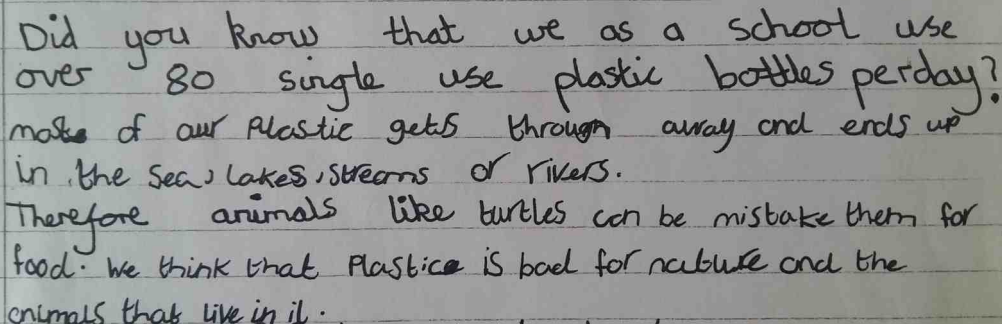 Did you know that we as a school use
over 80 single use plastic bottles perday?
most of our Plastic gets through away and ends up
in the sea, lakes, streams or rivers.
Therefore animals like turtles can be mistake them for
food. We think that Plastic is bad for nature and the
animals that live in it.